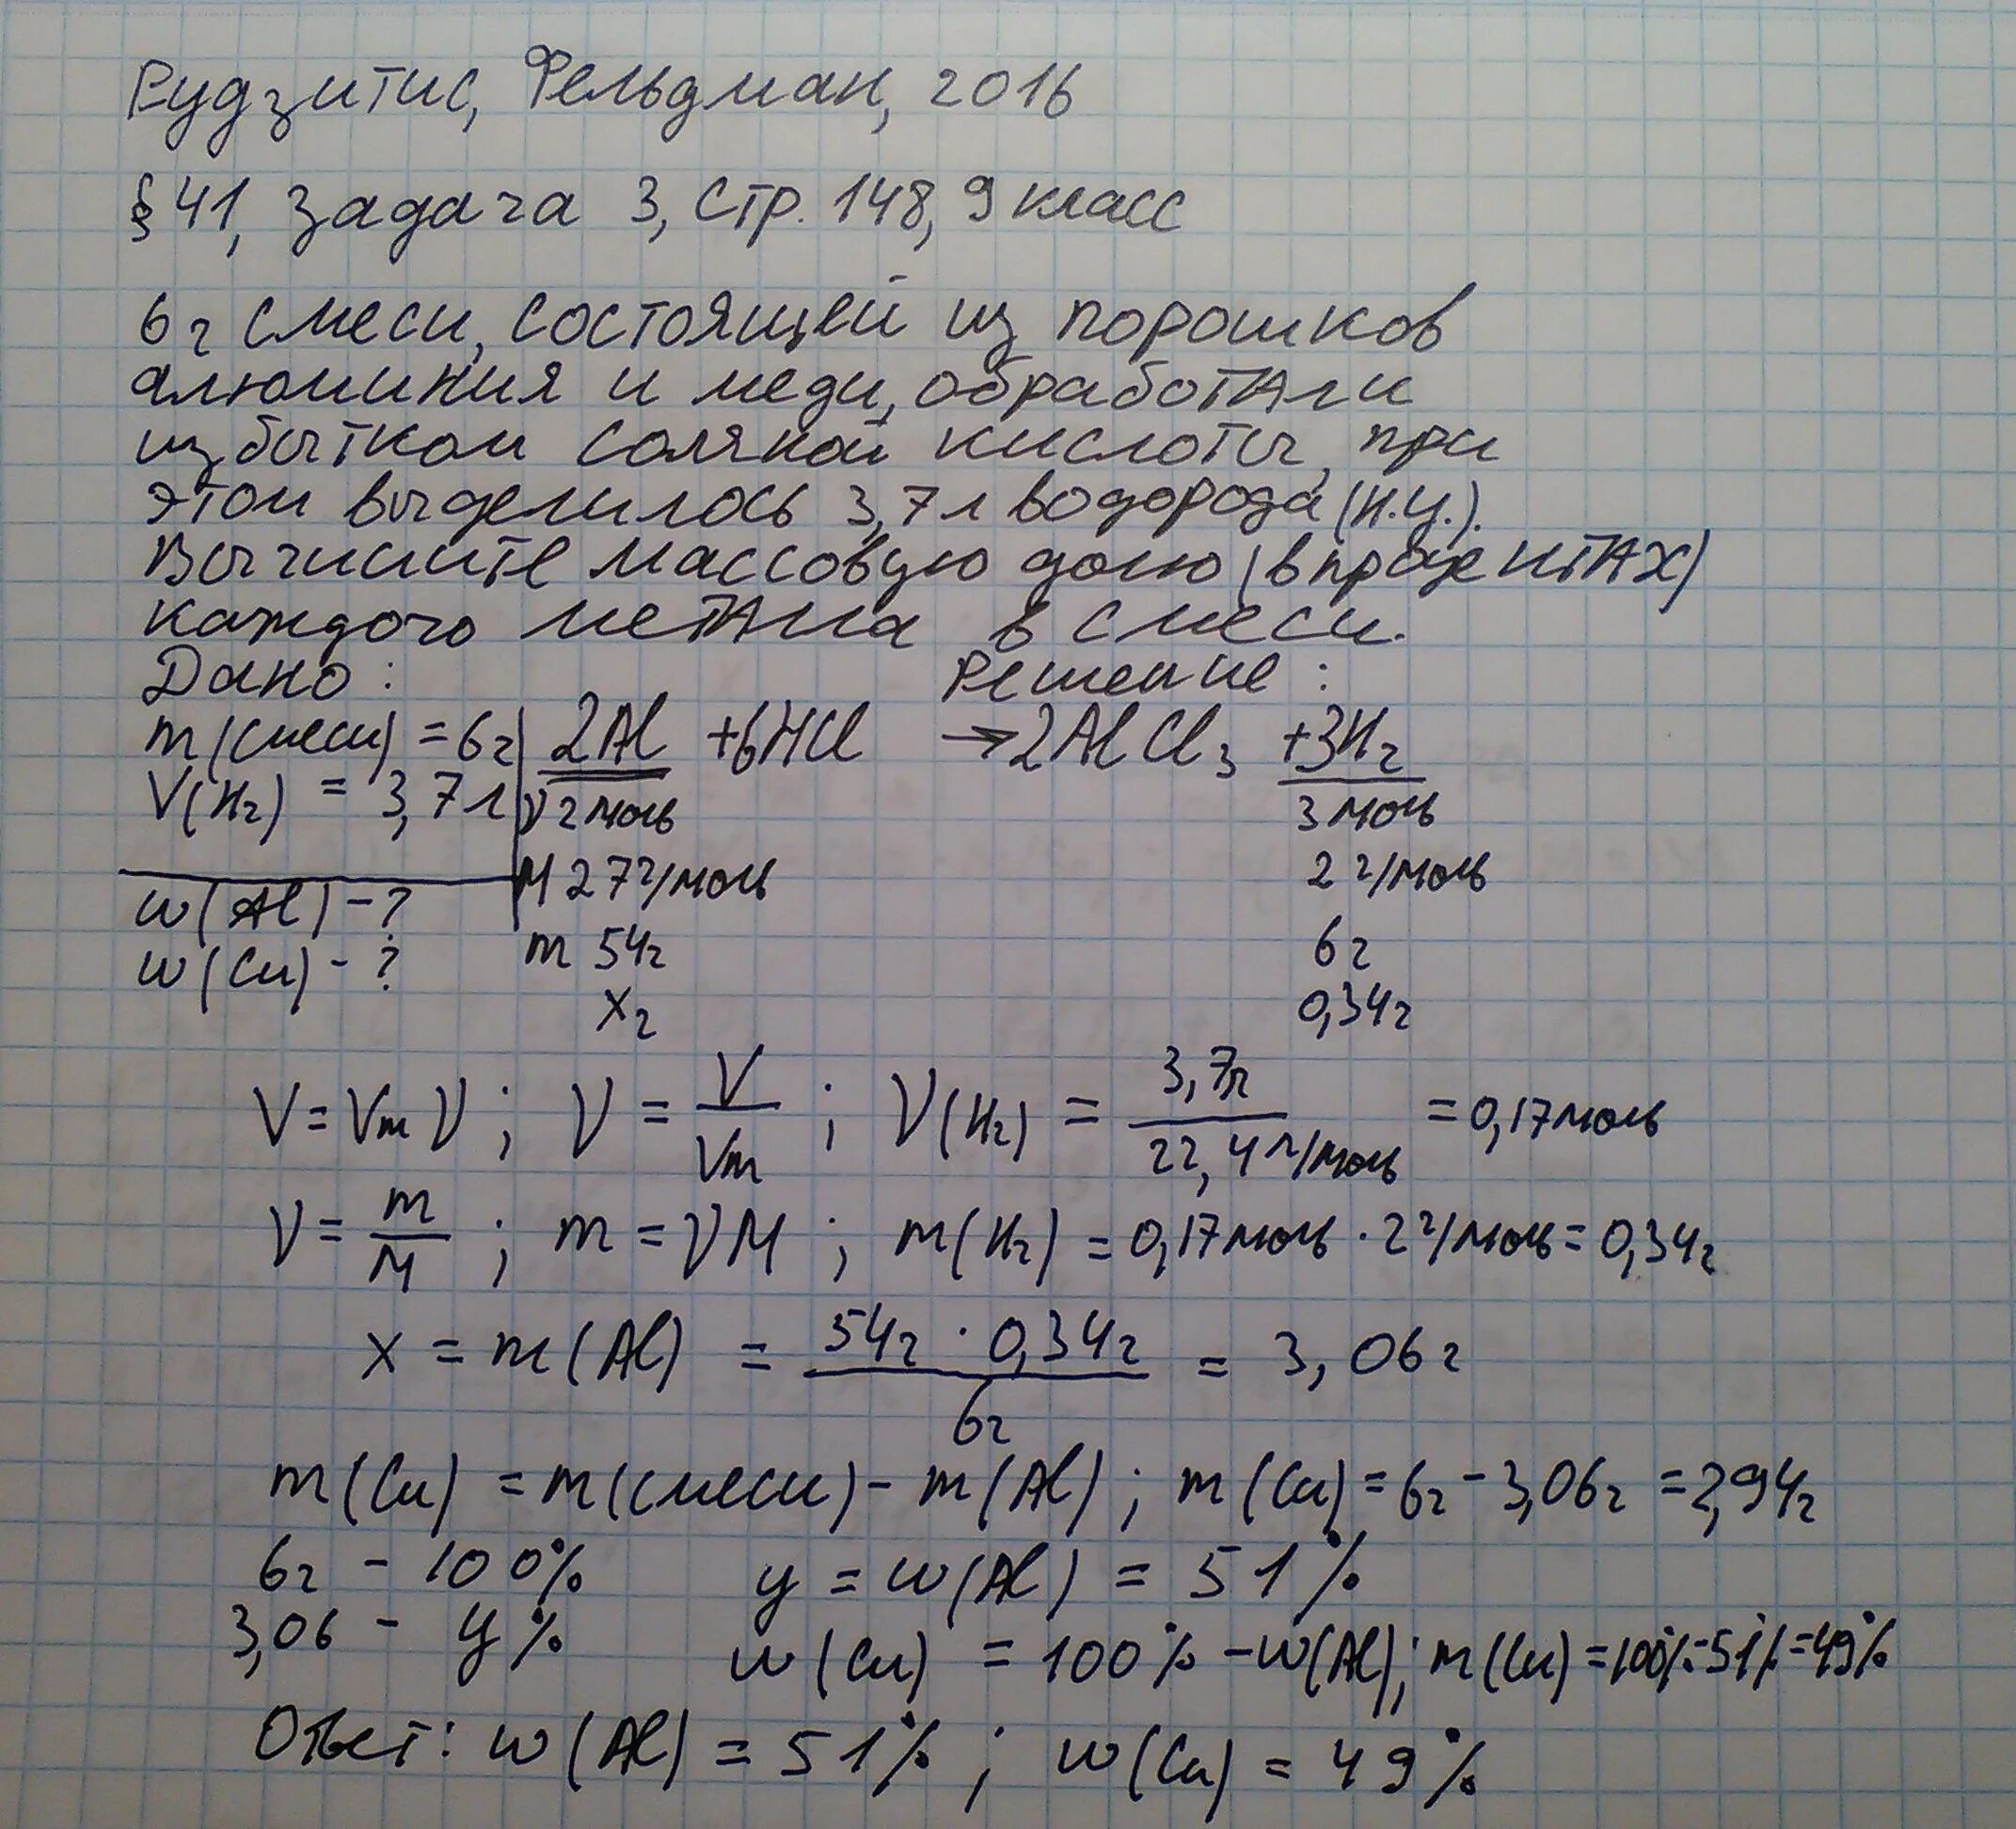 Рудзитис, Фельдман, 2016
§ 41, задача 3, стр. 148, 9 класс
6 г смеси, состоящей из порошков
алюминия и меди, обработали
избытком соляной кислоты, при
этом выделилось 3,7 л водорода (н.у.).
Вычислите массовую долю (в процентах)
каждого металла в смеси.
Дано: Решение:
m(смеси) = 6г 2Al + 6HCl → 2AlCl₃ + 3H₂
V(H₂) = 3,7 л ν 2 моль 3 моль
M 27 г/моль 2 г/моль
w(Al) - ?
m 54г 6г
w(Cu) - ?
x г 0,34г
V = Vm ν ; ν = V/Vm ; ν(H₂) = 3,7л / 22,4 л/моль = 0,17 моль
ν = m/M ; m = νM ; m(H₂) = 0,17 моль · 2 г/моль = 0,34г
x = m(Al) = 54г · 0,34г / 6г = 3,06г
m(Cu) = m(смеси) - m(Al) ; m(Cu) = 6г - 3,06г = 2,94г
6г - 100% y = w(Al) = 51%
3,06 - y% w(Cu) = 100% - w(Al) ; m(Cu) = 100% - 51% = 49%
Ответ: w(Al) = 51% ; w(Cu) = 49%